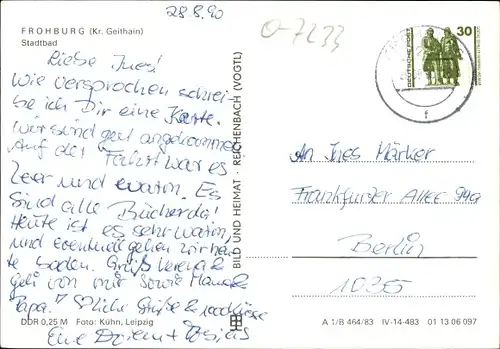 28.8.90
O-7233
FROHBURG (Kr. Geithain)
Stadtbad
Liebe Ines!
Wie versprochen schrei-
be ich Dir eine Karte.
Wir sind gut angekommen
Auf der Fahrt war es
leer und warm. Es
sind alle Bücher da!
Heute ist es sehr warm,
und eventuell gehen wir heu-
te baden. Grüß Verena &
von mir sowie Mama &
Papa! Grüße & 1000 Küsse
Eure
DDR 0,25 M Foto: Kühn, Leipzig
BILD UND HEIMAT · REICHENBACH (VOGTL)
DEUTSCHE POST
30
f
An Ines Märker
Frankfurter Allee 99a
Berlin
1035
A 1/B 464/83 IV-14-483 01 13 06 097